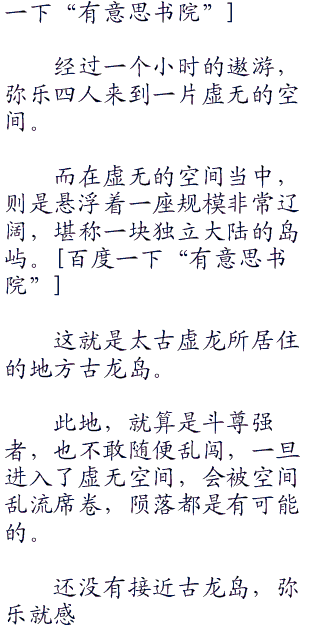 一下“有意思书院”]
经过一个小时的遨游，
弥乐四人来到一片虚无的空
间。
而在虚无的空间当中，
则是悬浮着一座规模非常辽
阔，堪称一块独立大陆的岛
屿。[百度一下“有意思书
院”]
这就是太古虚龙所居住
的地方古龙岛。
此地，就算是斗尊强
者，也不敢随便乱闯，一旦
进入了虚无空间，会被空间
乱流席卷，陨落都是有可能
的。
还没有接近古龙岛，弥
乐就感